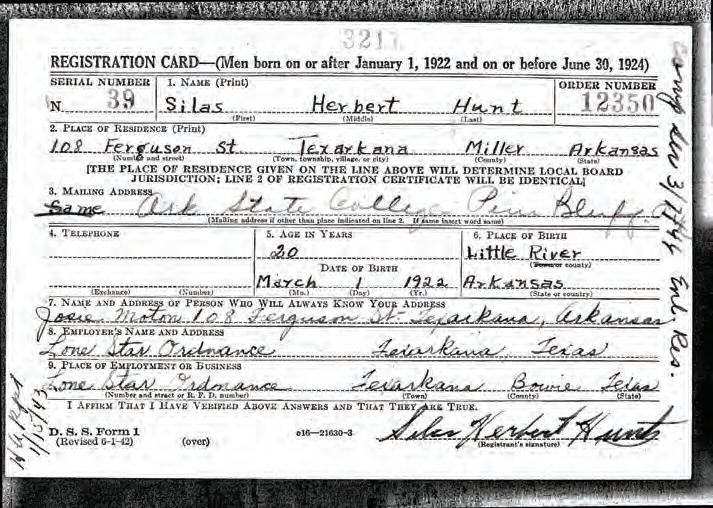 3211
REGISTRATION CARD—(Men born on or after January 1, 1922 and on or before June 30, 1924)
SERIAL NUMBER 1. NAME (Print) ORDER NUMBER
N 39 Silas Herbert Hunt 12350
(First) (Middle) (Last)
2. PLACE OF RESIDENCE (Print)
108 Ferguson St Texarkana Miller Arkansas
(Number and street) (Town, township, village, or city) (County) (State)
[THE PLACE OF RESIDENCE GIVEN ON THE LINE ABOVE WILL DETERMINE LOCAL BOARD
JURISDICTION; LINE 2 OF REGISTRATION CERTIFICATE WILL BE IDENTICAL]
3. MAILING ADDRESS
Same Ark State College Pine Bluff
(Mailing address if other than place indicated on line 2. If same insert word same)
4. TELEPHONE 5. AGE IN YEARS 6. PLACE OF BIRTH
20 Little River
DATE OF BIRTH (Town or county)
March 1 1922 Arkansas
(Exchange) (Number) (Mo.) (Day) (Yr.) (State or country)
7. NAME AND ADDRESS OF PERSON WHO WILL ALWAYS KNOW YOUR ADDRESS
Josie Moton 108 Ferguson St Texarkana, Arkansas
8. EMPLOYER'S NAME AND ADDRESS
Lone Star Ordnance Texarkana, Texas
9. PLACE OF EMPLOYMENT OR BUSINESS
Lone Star Ordnance Texarkana Bowie Texas
(Number and street or R. F. D. number) (Town) (County) (State)
I AFFIRM THAT I HAVE VERIFIED ABOVE ANSWERS AND THAT THEY ARE TRUE.
D. S. S. Form 1
(Revised 6-1-42) (over) c16—21630-3 Silas Herbert Hunt
(Registrant's signature)
1/15/43
Enl. Res.